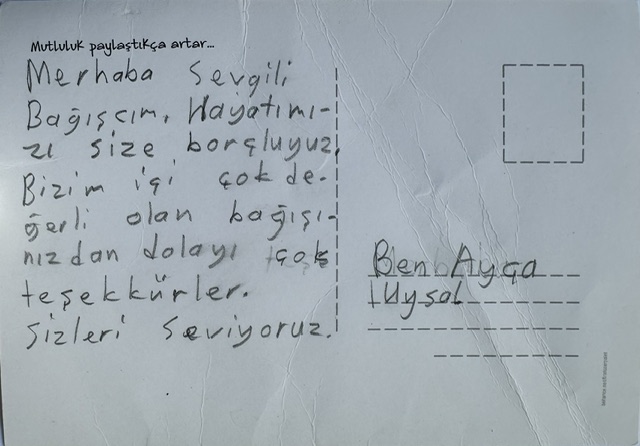 Mutluluk paylaştıkça artar...
Merhaba Sevgili
Bağışcım, Hayatımı-
zı size borçluyuz.
Bizim içi çok de-
ğerli olan bağışı-
nızdan dolayı çok
teşekkürler.
Sizleri Seviyoruz.
Ben Ayça
Uysal